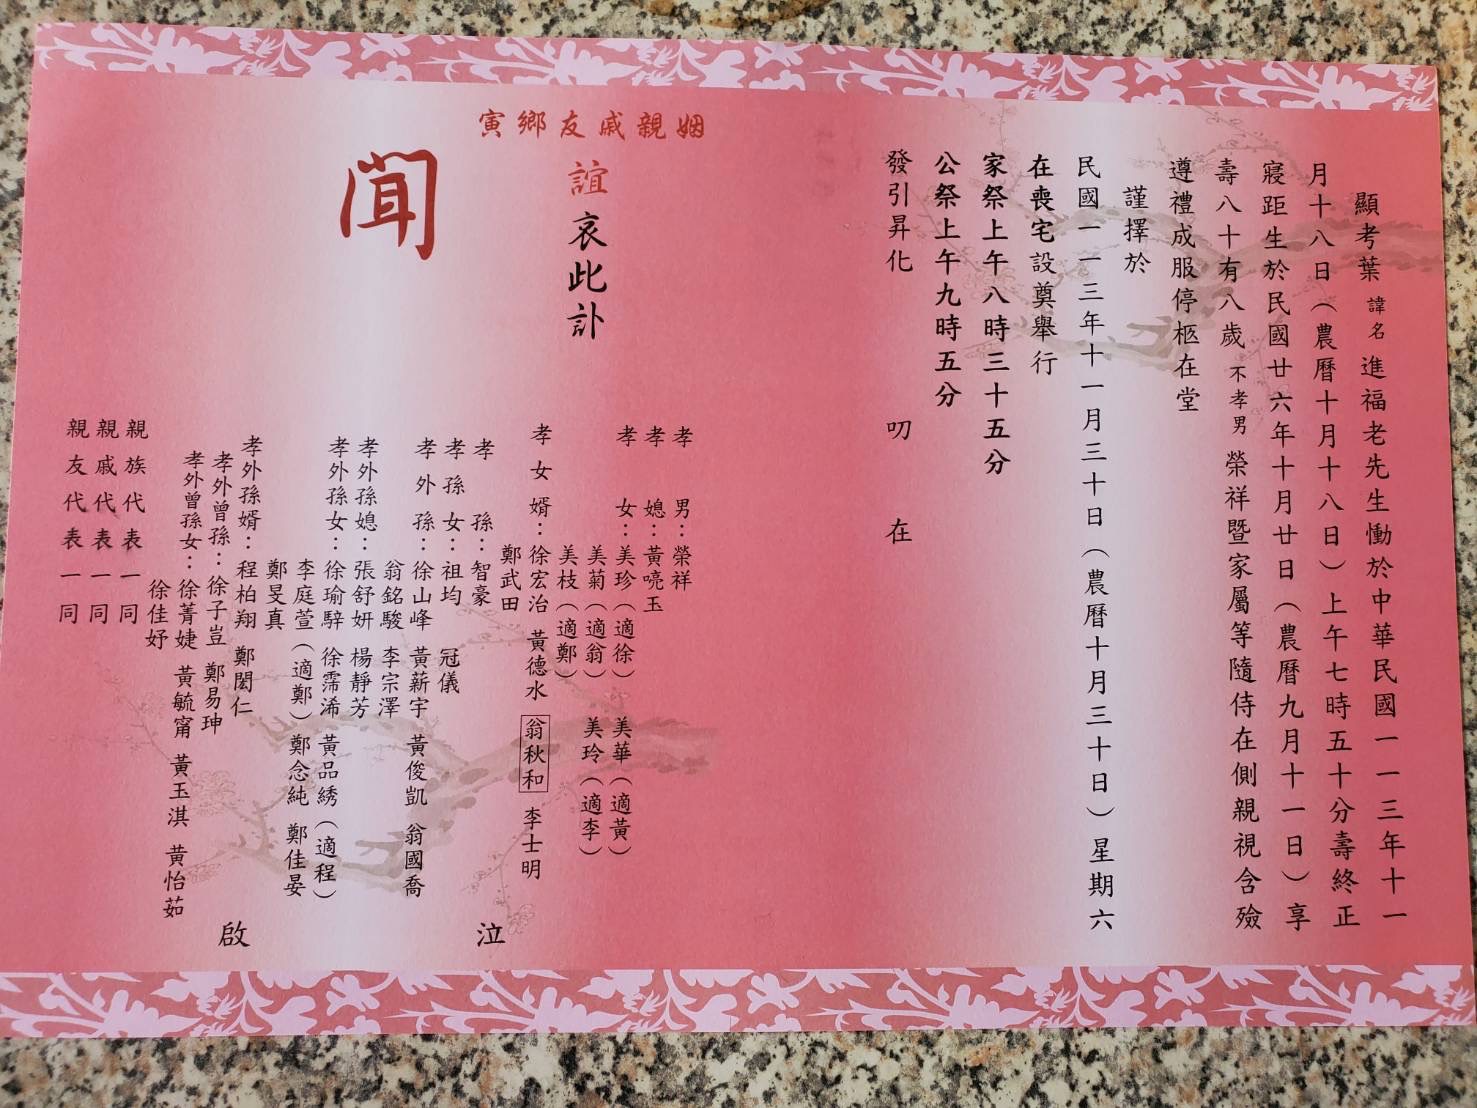 顯考葉 諱名 進福老先生慟於中華民國一一三年十一
月十八日（農曆十月十八日）上午七時五十分壽終正
寢距生於民國廿六年十月廿日（農曆九月十一日）享
壽八十有八歲 不孝男 榮祥暨家屬等隨侍在側親視含殮
遵禮成服停柩在堂
謹擇於
民國一一三年十一月三十日（農曆十月三十日）星期六
在喪宅設奠舉行
家祭上午八時三十五分
公祭上午九時五分
發引昇化 叨 在
姻親戚友鄉寅
誼 哀此訃
聞
孝男：榮祥
孝媳：黃喨玉
孝女：美珍（適徐） 美華（適黃）
美菊（適翁） 美玲（適李）
美枝（適鄭）
孝女婿：徐宏治 黃德水 翁秋和 李士明
鄭武田
孝孫：智豪
孝孫女：祖均 冠儀
孝外孫：徐山峰 黃薪宇 黃俊凱 翁國喬
翁銘駿 李宗澤
孝外孫媳：張舒妍 楊靜芳
孝外孫女：徐瑜騂 徐霈浠 黃品綉（適程）
李庭萱（適鄭） 鄭念純 鄭佳晏
鄭旻真
孝外孫婿：程柏翔 鄭閎仁
孝外曾孫：徐子豈 鄭易珅
孝外曾孫女：徐菁婕 黃毓甯 黃玉淇 黃怡茹
徐佳妤
親族代表一同
親戚代表一同
親友代表一同
泣
啟